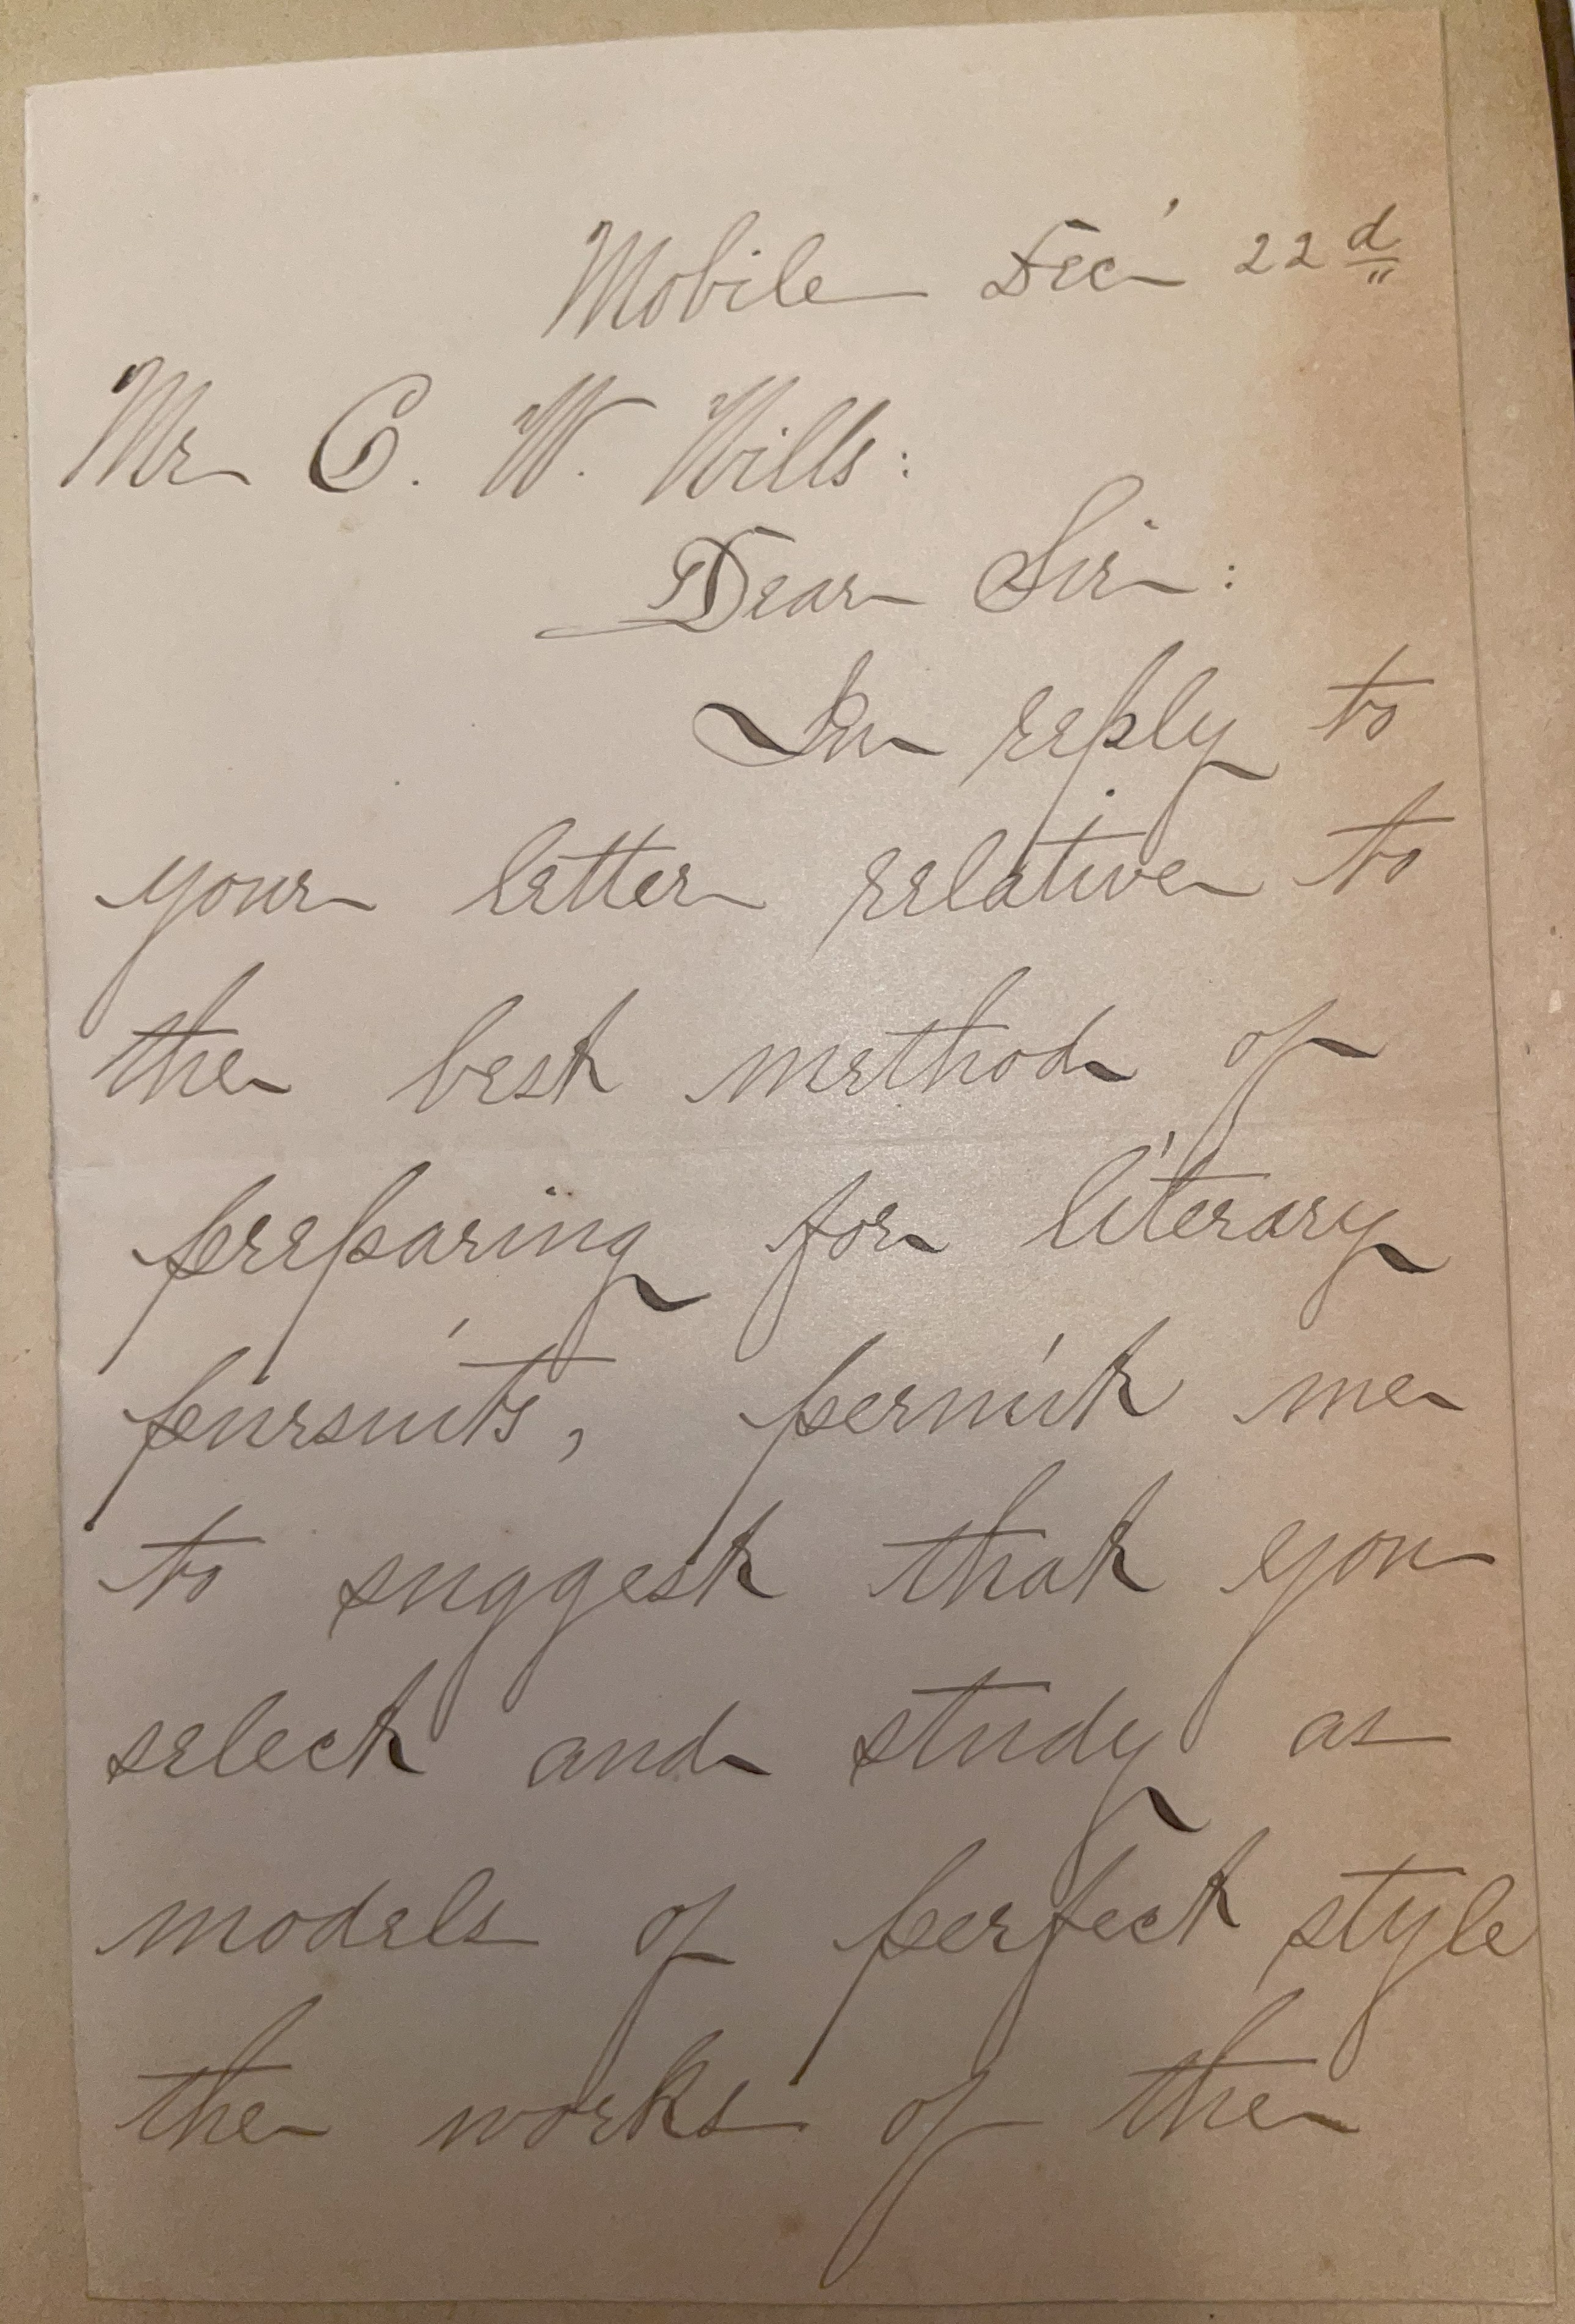 Mobile Dec' 22d
Mr C. W. Wills:
Dear Sir:
In reply to
your letter relative to
the best method of
preparing for literary
pursuits, permit me
to suggest that you
select and study as
models of perfect style
the works of the